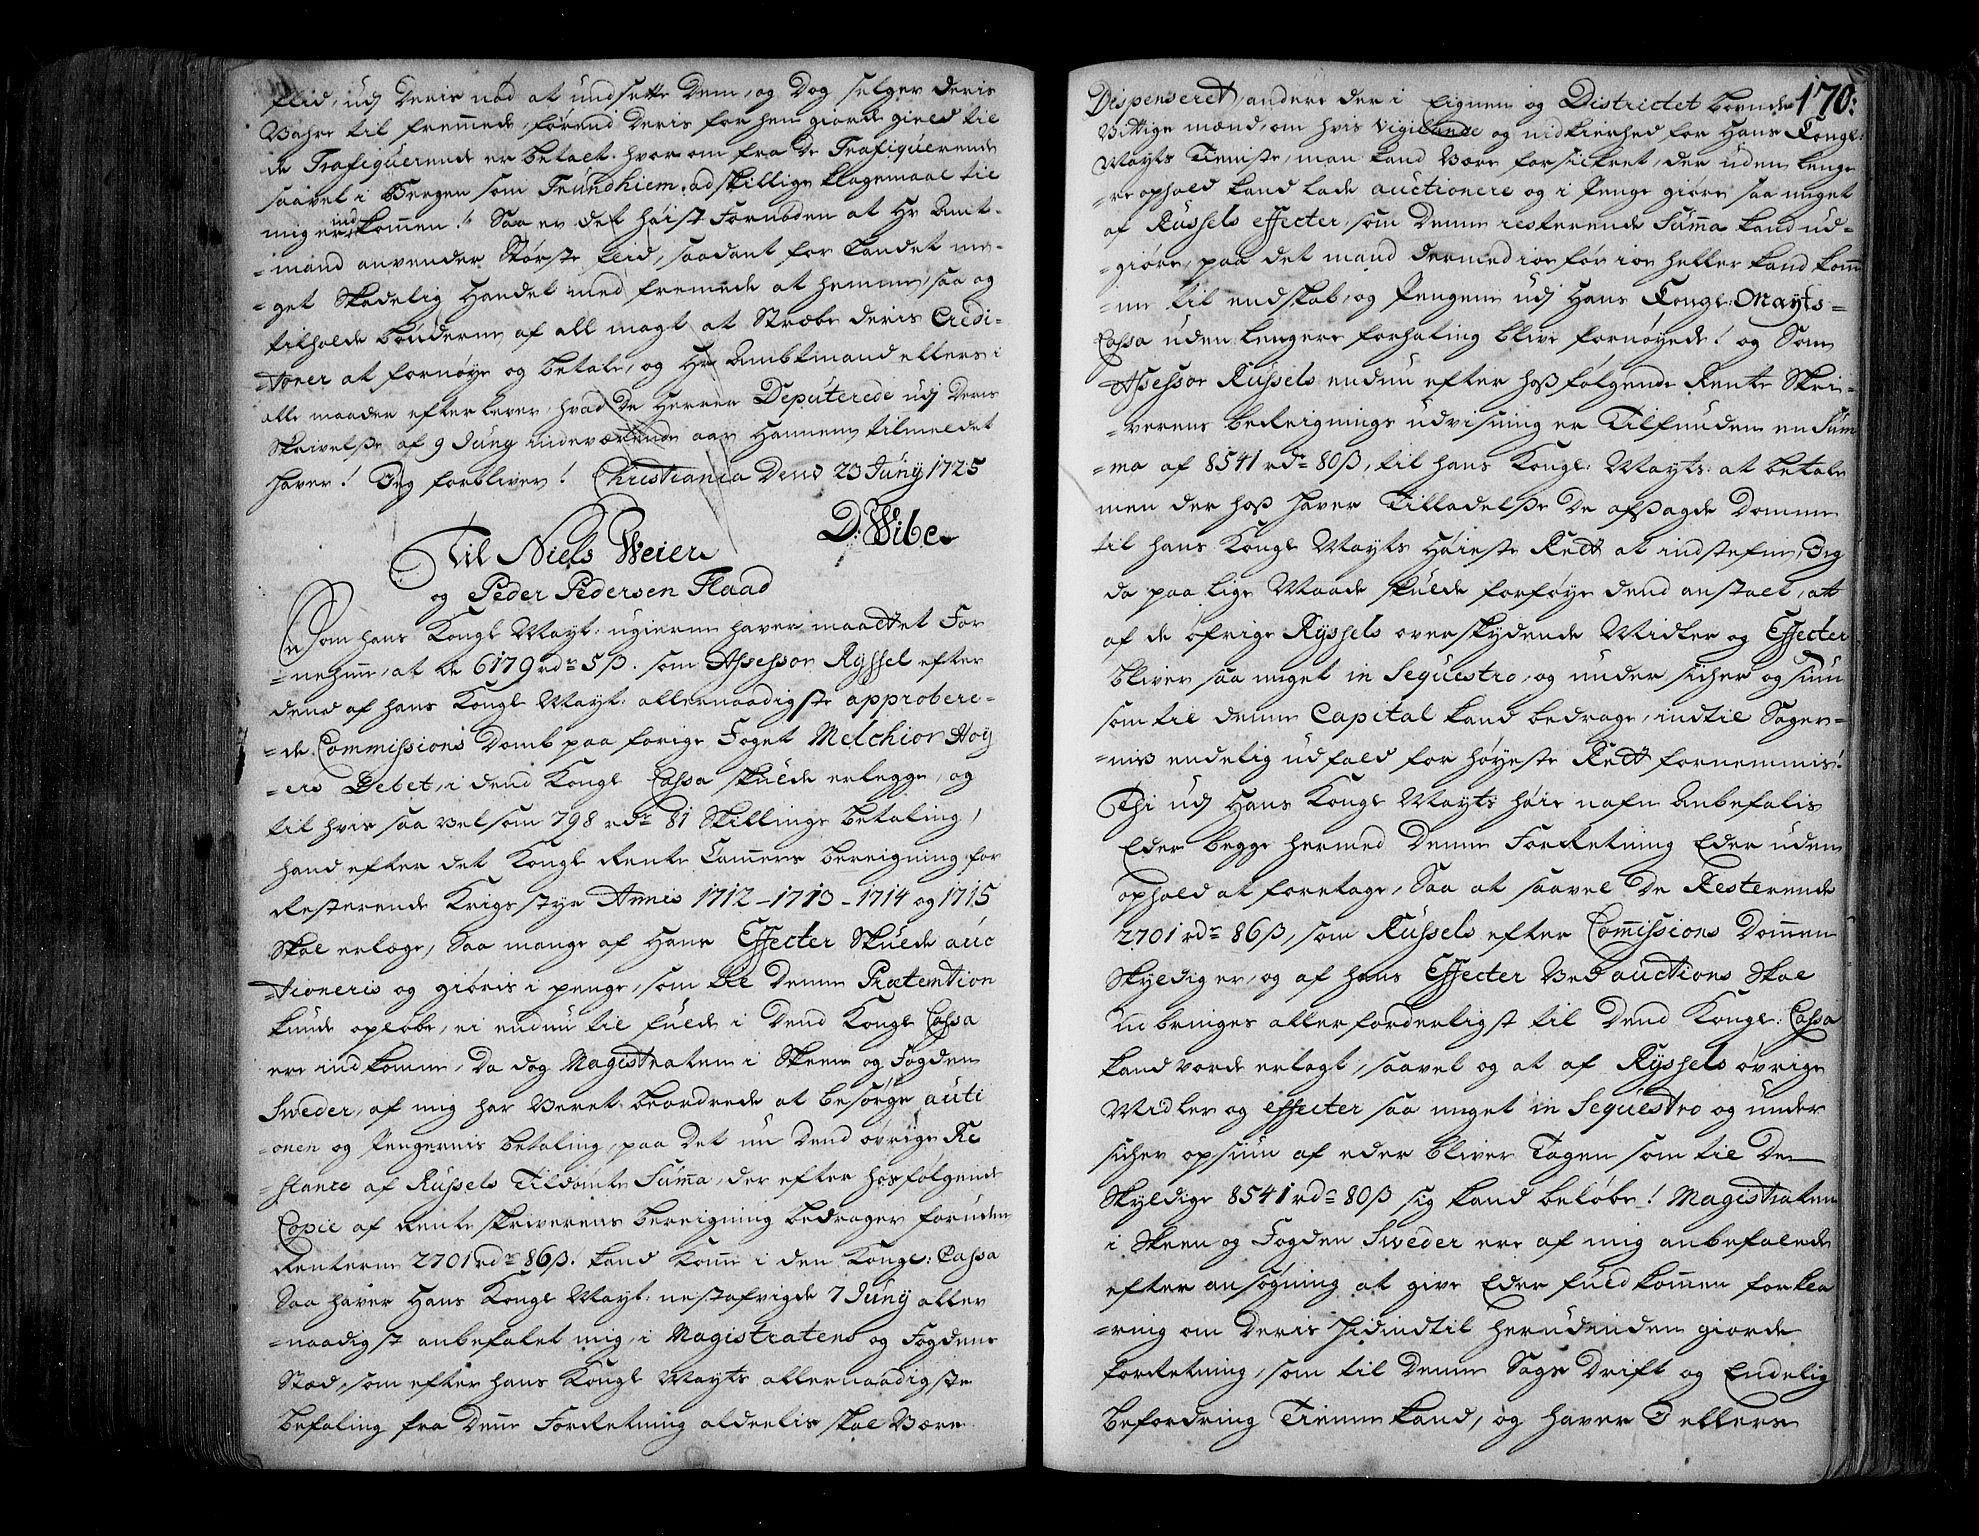 flid, udj deris nød at undsette dem, og dog selger deris
Vahre til fremmede, førend deris forhen giorde gield til
de Trafiquerende er betalt, hvorom fra de Trafiquerende
saavel i Bergen som Trundhiem, adskillige klagemaal til
mig ere indkommen! Saa er det høist fornøden at Hr Amt-
-mand anvender største flid, saadant for Landet me-
-get skadelig Handel med fremede at hemme, saa og
tilholde bønderne af all magt at stræbe deris Credi-
-torer at fornøye og betale, og Hr Ambtmand ellers i
alle maader efterlever, hvad de Herrer Deputerede udj deris
Skrivelsse af 9 Juny indeværende aar hannem tilmeldet
haver! Jeg forbliver! Christiania dend 23 Juny 1725
D: Wibe
Til Niels Weier
og Peder Pedersen Flaad
Som hans Kongl Mayt: ugierne haver maattet For
-nehme, at de 6179 rdr 5 ß. som Assessor Ryssel efter
dend af hans Kongl Mayt: allernaadigste approbere-
-de Commissions Domb paa forige Foget Melchior Høy
-ers Debet, i dend Kongl Cassa skulde erlegge, og
til hvis saavelsom 798 rdr 81 Skillings betaling,
hand efter det Kongl Rente Camers bereigning for
Resterende Krigsstyr Annis 1712 - 1713 - 1714 og 1715
skal erlege, saa mange af hans Effecter skulde auc
-tioneris og giøris i penge, som til denne Prætention
kunde opløbe, ei endnu til fulde i dend Kongl Cassa
ere indkomne, da dog Magistraten i Skeen og Fogden
Sweder, af mig har veret beordrede at besørge aucti
-onen og Pengernis betaling, paa det nu dend øvrige Re
-stance af Russels tildømte Suma, der efter hosfølgende
Copie af Renteskriverens bereigning bedrager foruden
Renterne 2701 rdr 86 ß. kand kome i den Kongl: Cassa
Saa haver Hans Kongl Mayt: nestafvigde 7 Juny aller
-naadigst anbefalet mig, i Magistratens og Fogdens
Sted, som efter hans Kongl Mayts allernaadigste
befaling fra denne Forretning aldeelis skal være
170:
Dispenseret, andere der i Eignen og Districtet boende
vittige mænd, om hvis vigilance og nidkierhed for Hans Kongl:
Mayts Tieniste, man kand være forsickret, der uden lenge
-re ophold kand lade auctionere og i Penge giøre saa meget
af Russels effecter, som denne resterende Suma kand ud-
-giøre, paa det mand dermed ioe før ioe heller kand kom
-me til endskab, og Pengene udj Hans Kongl: Mayts-
Cassa uden lengere forhaling blive fornøyede! og som
Assessor Russels endnu efter hoßfølgende Rente Skri-
-verens bereignings udvisning er tilfunden en Sum
-ma af 8541 rdr 80 ß, til hans Kongl: Mayts: at betale
men der hoß haver tilladelsse de afsagde Domme
til hans Kongl Mayts Høieste Rett at indstefne, Jeg
da paa lige Maade skulde forføye dend anstalt, at
af de øfrige Ryssels overskydende Midler og Effecter
bliver saa meget in Sequestro, og under sicher og siun
som til denne Capital kand bedrage, indtil Sager-
-nis endelig udfald for høyeste Rett fornemmis!
Thi udj Hans Kongl Mayts høie nafn anbefalis
Eder begge hermed denne Forretning Eder uden
ophold at foretage, Saa at saavel de Resterende
2701 rdr 86 ß, som Russels efter Commissions Dommen
skyldig er, og af hans Effecter ved auctions skal
udbringes allerforderligst til dend Kongl: Cassa
kand vorde erlagt, saavel og at af Ryssels øvrige
Midler og effecter saa meget in Sequestro og under
sicher opsiun af eder bliver tagen som til de
skyldige 8541 rdr 80 ß sig kand beløbe! Magistraten
i Skeen og Fogden Sweder ere af mig anbefalede
efter ansøgning at give Eder fuldkommen forkla
-ring om deris hidindtil herudinden giorde
forretning, som til denne Sags Drift og Endelig
befordring tienne kand, og haver I ellers